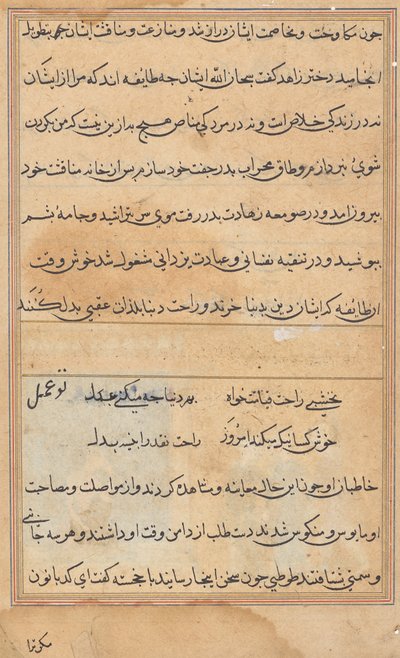 چون مکاوحت و مخاصمت ایشان دراز شد و منازعت و مناقشت ایشان بتطویل
انجامید دختر زاهد گفت سبحان الله ایشان چه طایفه اند که مرا از ایشان
نه در زندگی خلاص است و نه در مردگی مناص هیچ به ازین نیست که من بکردن
شوی نپردازم و طاق محراب بدر جفت خود سازم پس از خانه مناقشت خود
بیرون آمد و در صومعه زهادت بدر رفت موی سر بتراشید و جامه پشم
بپوشید و در تنقیه نفسانی و عبادت یزدانی مشغول شد خوش وقت
آن طایفه که ایشان دین بدنیا خرند و راحت دنیا بلذات عقبی بدل کنند
نخشبی راحت قیامت خواه بهر دنیا چه میکنی تو عمل
خوش کسانیکه میکند امروز راحت نقد را بنسیه بدل
خاطبان او چون این حال معاینه و مشاهده کردند و از مواصلت و مصاحبت
او مایوس و منکوس شدند دست طلب از دامن وقت او داشتند و هر سه جانبی
و سمتی شتافتند طوطی چون سخن اینجا رسانید با خجسته گفت ای کدبانو